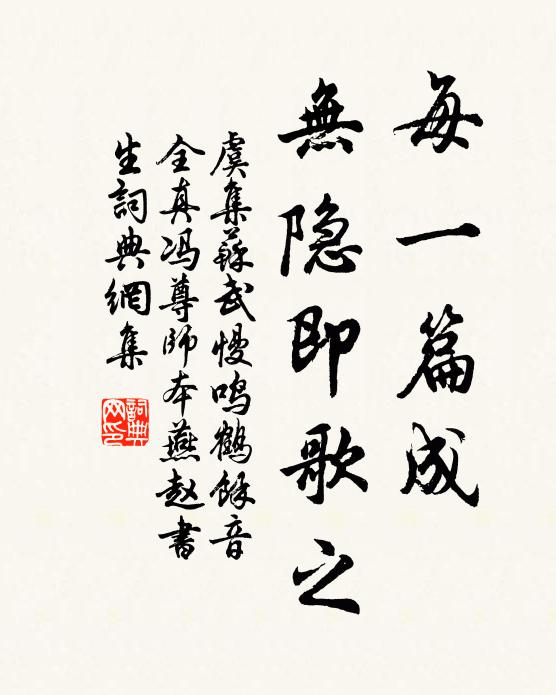 每一篇成
無隐即歌之
虞集蘇武慢鸣鶴餘音
全真冯尊師本燕赵書
生詞典網集
詞典网印